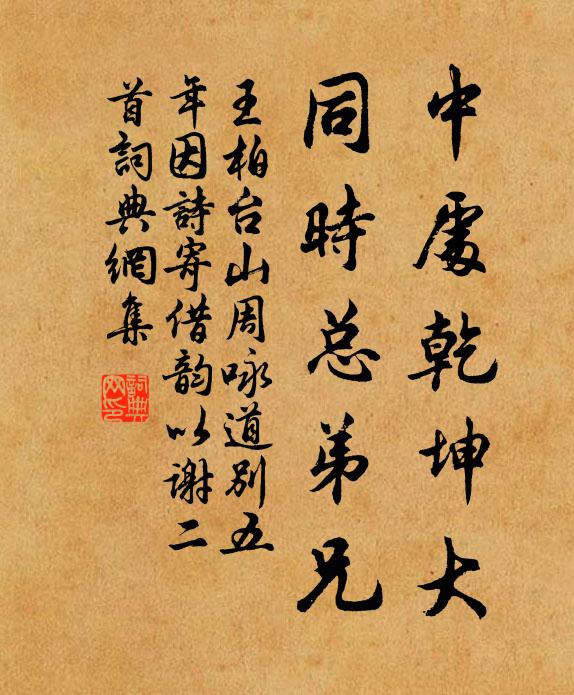 中處乾坤大
同時总弟兄
王柏台山周咏道别五
年因詩寄借韵以谢二
首詞典網集
詞典
网印